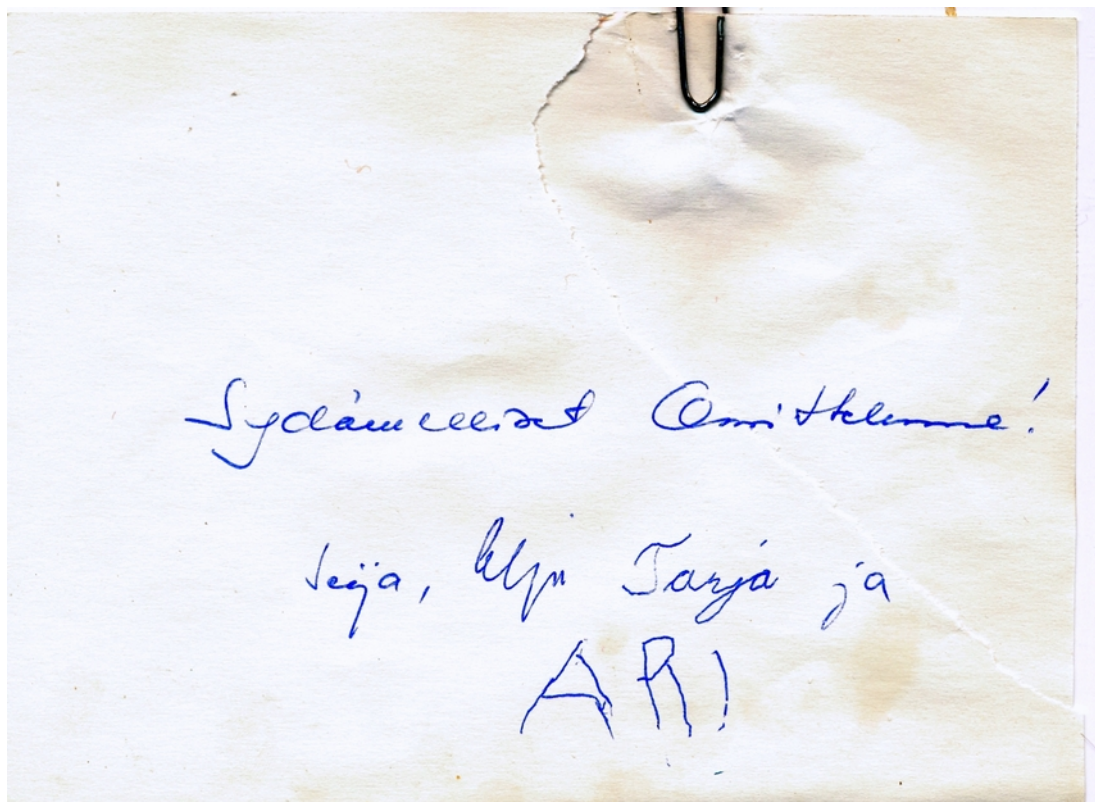 Sydämelliset Onnittelumme!
Seija, Tarja ja
ARI